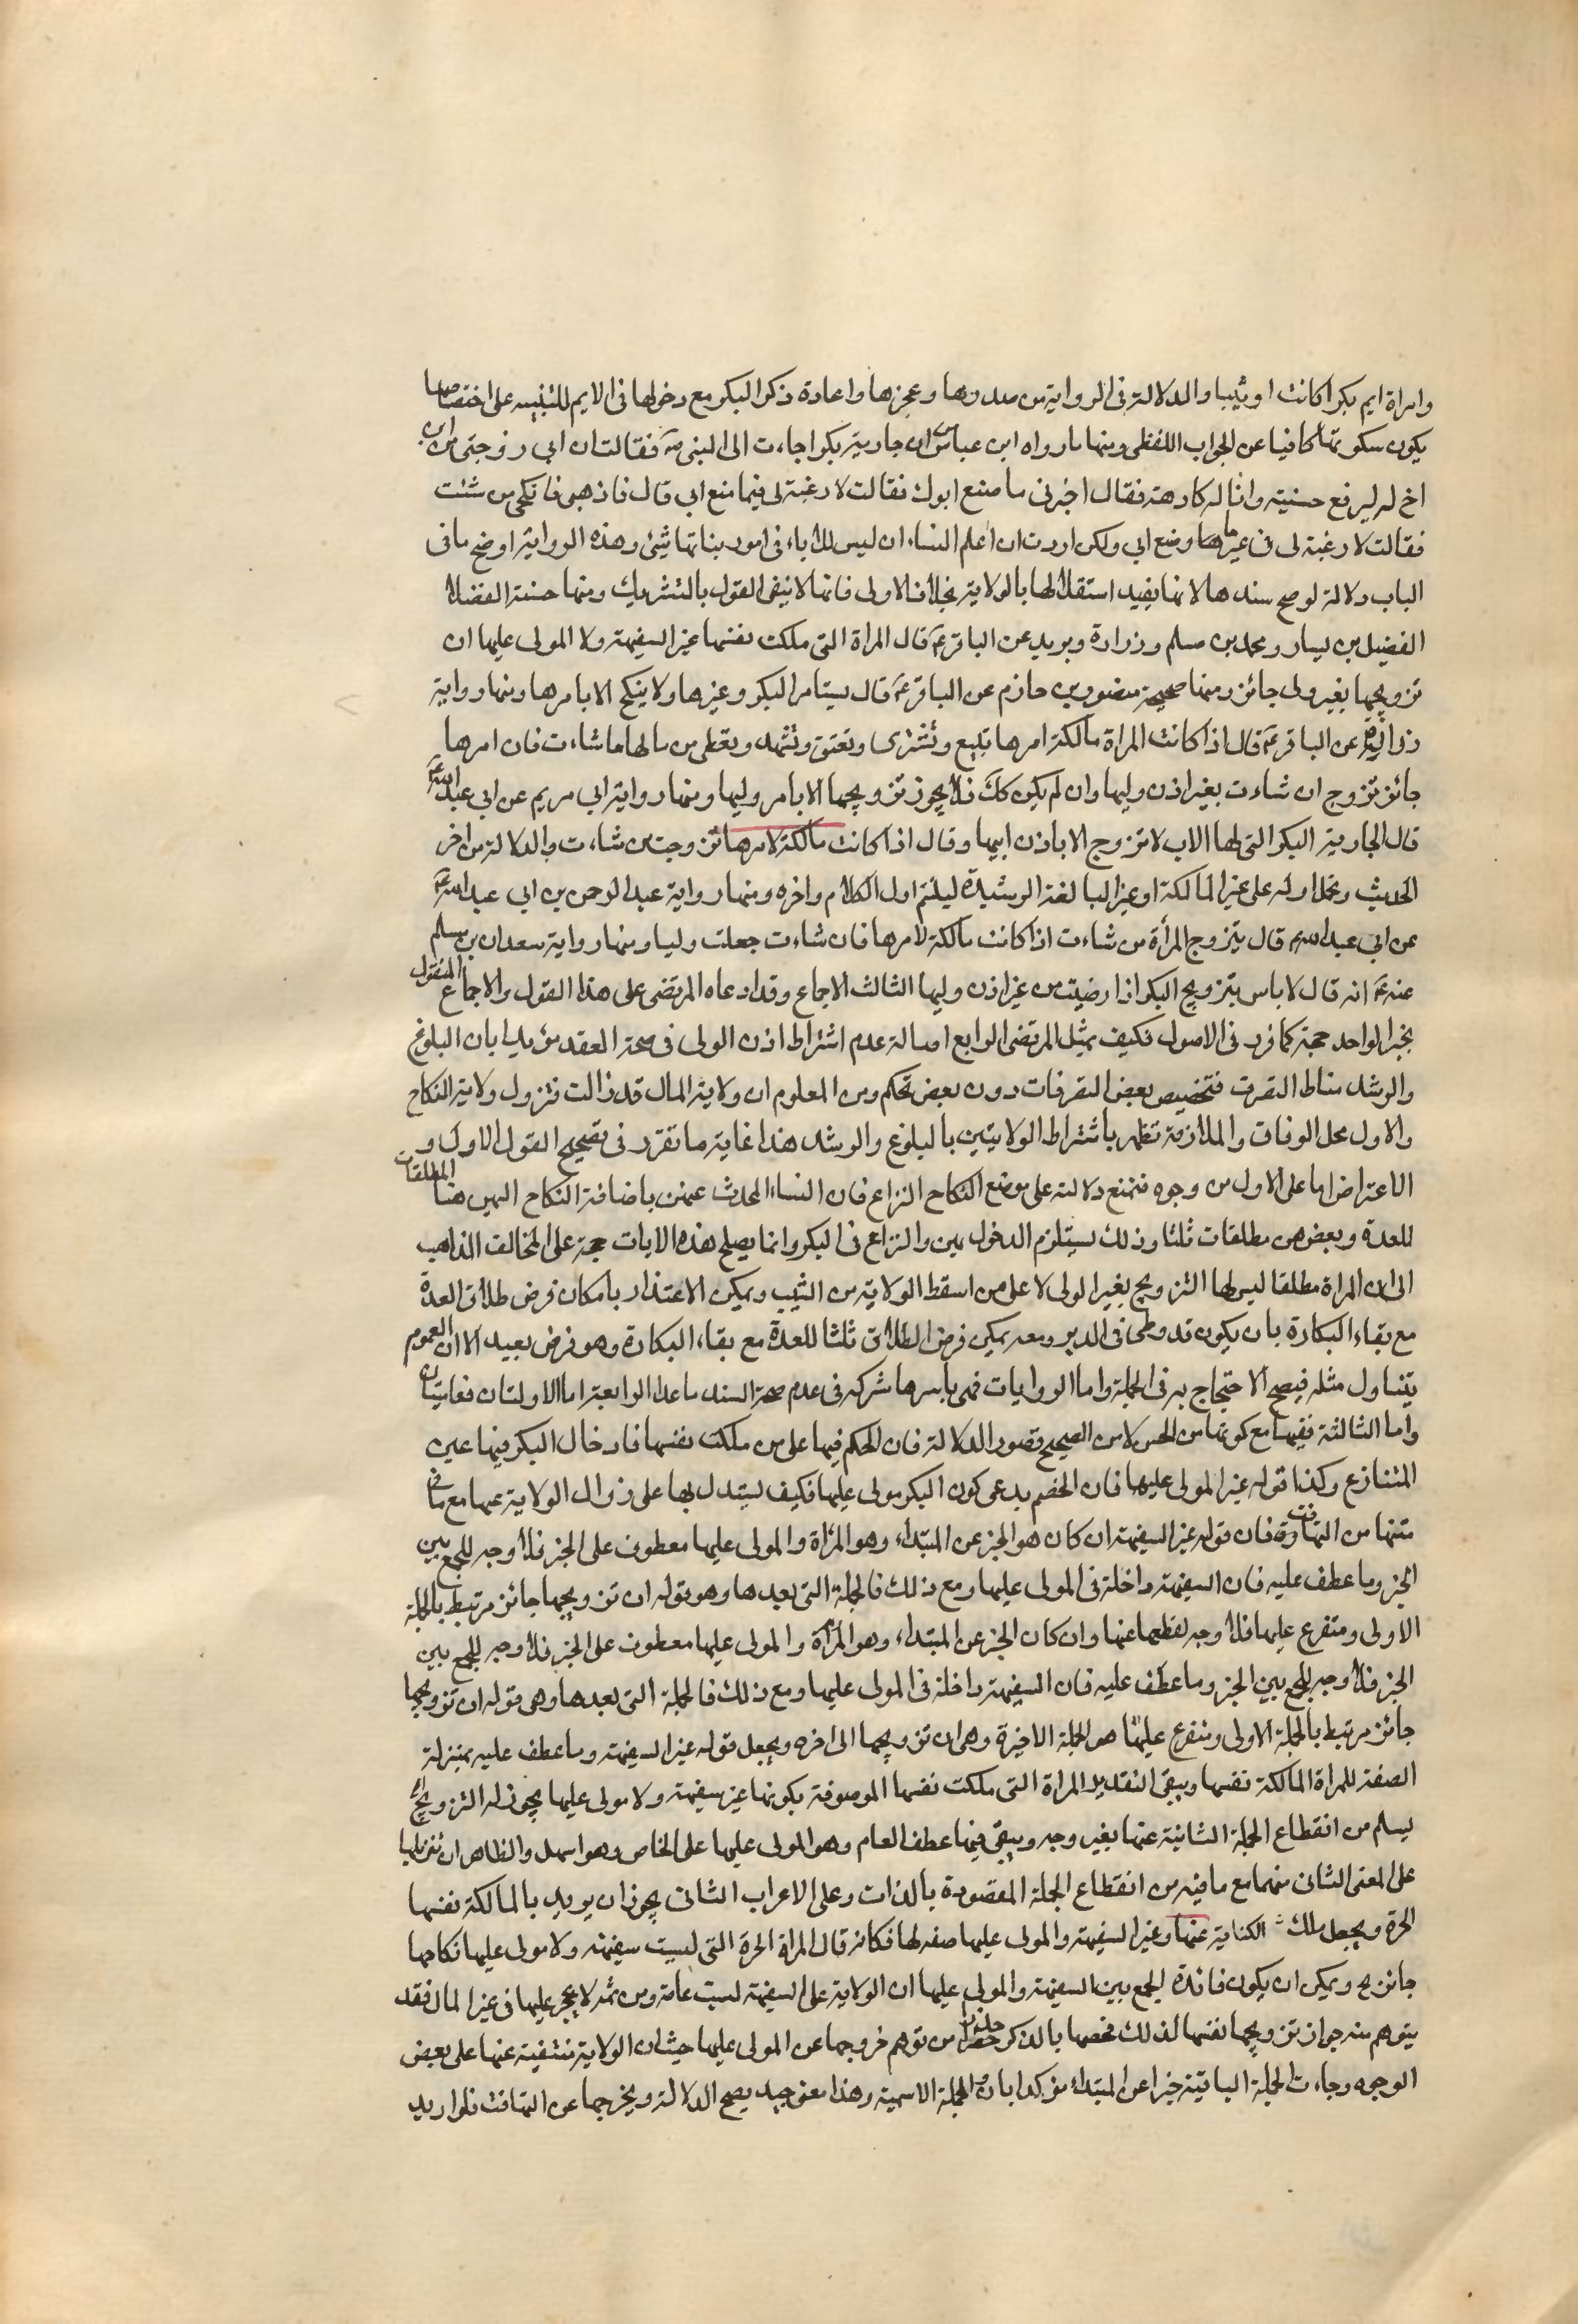 وامراة ايم بكرا كانت او ثيبا والدلالة فى الرواية من صدرها وعجزها واعادة ذكر البكر مع دخولها فى الايم للتنبيه على اختصاصها
يكون سكوتها كافيا عن الجواب اللفظى ومنها مارواه ابن عباس ان جارية بكرا جاءت الى النبى ص فقالت ان ابى زوجنى من ابن
اخ له ليرفع خسيسته وانا له كارهة فقال اجيزى ما صنع ابوك فقالت لا رغبة لى فيما صنع ابى قال فاذهبى فانكحى من شئت
فقالت لا رغبة لى فى غير ما صنع ابى ولكن اردت ان اعلم النساء ان ليس للاباء فى امور بناتها شئ وهذه الرواية اوضح ما فى
الباب دلالة لو صح سندها لانها يفيد استقلالها بالولاية بخلاف الاولى فانها لا ينفى القول بالتشريك ومنها حسنة الفضلاء
الفضيل بن يسار ومحمد بن مسلم وزرارة وبريد عن الباقر ع قال المراة التى ملكت نفسها غير السفيهة ولا المولى عليها ان
تزويجها بغير ولى جائز ومنها صحيحة منصور بن حازم عن الباقر ع قال يستامر البكر وغيرها ولا ينكح الا بامرها ومنها رواية
زرارة عن الباقر ع قال اذا كانت المراة مالكة امرها تبيع وتشترى وتعتق وتشهد وتعطى من مالها ما شاءت فان امرها
جائز تزوج ان شاءت بغير اذن وليها وان لم يكن كك فلا يجوز تزويجها الا بامر وليها ومنها رواية ابى مريم عن ابى عبد الله ع
قال الجارية البكر التى لها الاب لا تزوج الا باذن ابيها وقال اذا كانت مالكة لامرها تزوجت من شاءت والدلالة من اخر
الحديث ويحمل اوله على غير المالكة او غير البالغة الرشيدة ليلتئم اول الكلام واخره ومنها رواية عبد الرحمن بن ابى عبد الله ع
عن ابى عبد الله ع قال يتزوج المرأة من شاءت اذا كانت مالكة لامرها فان شاءت جعلت وليا ومنها رواية سعدان بن مسلم
عنه ع انه قال لا باس بتزويج البكر اذا رضيت من غير اذن وليها الثالث الاجماع وقد ادعاه المرتضى على هذا القول والاجماع المنقول
بخبر الواحد حجة كما قرر فى الاصول فكيف بمثل المرتضى الرابع اصالة عدم اشتراط اذن الولى فى صحة العقد مؤيدا بان البلوغ
والرشد مناط التصرف فتخصيص بعض التصرفات دون بعض تحكم ومن المعلوم ان ولاية المال قد زالت فتزول ولاية النكاح
والاول محل الوفاق والملازمة تظهر باشتراط الولايتين بالبلوغ والرشد هذا غاية ما تقرر فى تصحيح القول الاول و
الاعتراض اما على الاول من وجوه فنمنع دلالته على موضع النكاح النزاع فان النساء المحدث عنهن باضافة النكاح اليهن هنا المطلقات
للعدة وبعضهن مطلقات ثلثا وذلك يستلزم الدخول بهن والنزاع فى البكر وانما يصلح هذه الايات حجة على المخالف الذاهب
الى ان المراة مطلقا ليس لها التزويج بغير الولى لا على من اسقط الولاية من الثيب ويمكن الاعتذار بامكان فرض طلاق العدة
مع بقاء البكارة بان يكون قد وطى فى الدبر ومعه يمكن فرض الطلاق ثلثا للعدة مع بقاء البكارة وهو فرض بعيد الا ان العموم
يتناول مثله فيصح الاحتجاج به فى الجملة واما الروايات فهى باسرها مشتركة فى عدم صحة السند ماعدا الرابعة اما الاولتان فعاميتان
واما الثالثة ففيها مع كونها من الحسن لا من الصحيح قصور الدلالة فان الحكم فيها على من ملكت نفسها فادخال البكر فيها عين
المتنازع وكذا قوله غير المولى عليها فان الخصم يدعى كون البكر مولى عليها فكيف يستدل بها على زوال الولاية عنها مع ما فى
متنها من التهافت فان قوله غير السفيهة ان كان هو الخبر عن المبتداء وهو المرأة والمولى عليها معطوف على الخبر فلا وجه للجمع بين
الخبر وما عطف عليه فان السفيهة داخلة فى المولى عليها ومع ذلك فالجملة التى بعدها وهو قوله ان تزويجها جائز مرتبط بالجملة
الاولى ومتفرع عليها فلا وجه لقطعها عنها وان كان الخبر عن المبتداء وهو المرأة والمولى عليها معطوف على الخبر فلا وجه للجمع بين
الخبر فلا وجه للجمع بين الخبر وما عطف عليه فان السفيهة داخلة فى المولى عليها ومع ذلك فالجملة التى بعدها وهى قوله ان تزويجها
جائز مرتبط بالجملة الاولى ومتفرع عليها هو الجملة الاخيرة وهى ان تزويجها الى اخره ويجعل قوله غير السفيهة وما عطف عليه بمنزلة
الصفة للمراة المالكة نفسها ويبقى التقدير المراة التى ملكت نفسها الموصوفة بكونها غير سفيهة ولا مولى عليها يجوز له التزويج
ليسلم من انقطاع الجملة الثانية عنها بغير وجه ويبقى فيها عطف العام وهو المولى عليها على الخاص وهو اسهل والظاهر ان
على المعنى الثانى منهما مع ما فيه من انقطاع الجملة المقصودة بالذات وعلى الاعراب الثانى يجوز ان يريد بالمالكة نفسها
الحرة ويجعل ملك الكناية عنها وغير السفيهة والمولى عليها صفة لها فكانه قال المراة الحرة التى ليست سفيهة ولا مولى عليها نكاحها
جائز ح ويمكن ان يكون فائدة الجمع بين السفيهة والمولى عليها ان الولاية على السفيهة ليست عامة ومن ثمه لا يحجر عليها فى غير المال فقد
يتوهم منه جواز تزويجها نفسها لذلك فخصها بالذكر حذرا من توهم خروجها عن المولى عليها حيث ان الولاية منتفية عنها على بعض
الوجوه وجاءت الجملة الباقية خبرا عن المبتداء مؤكدا بان والجملة الاسمية وهذا معنى جيد يصح الدلالة ويخرجها عن التهافت فلو اريد